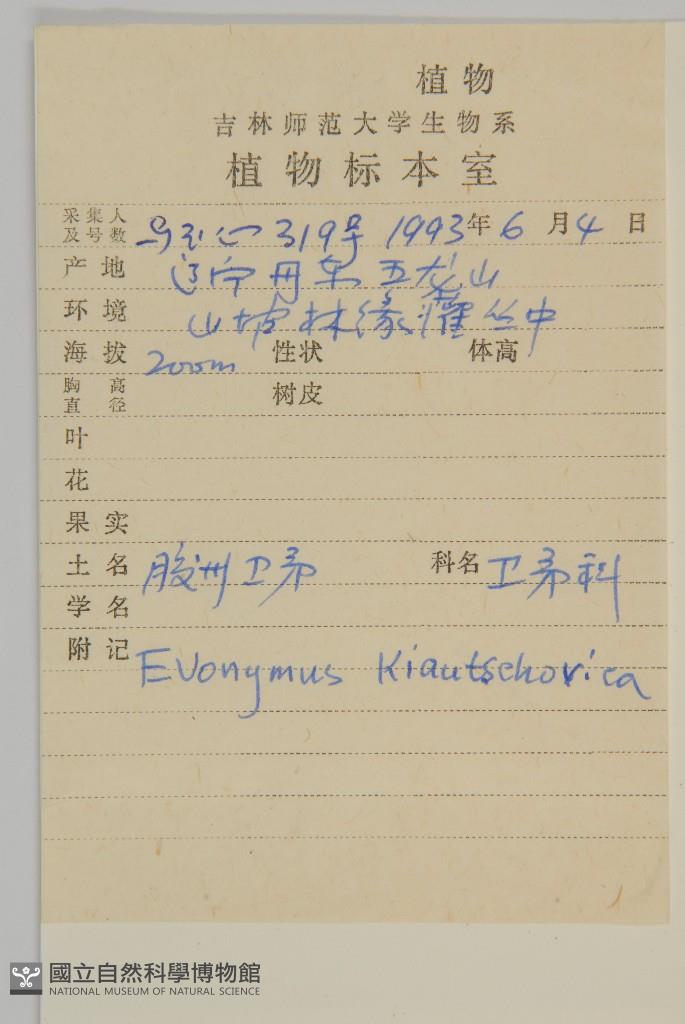 植物
吉林师范大学生物系
植物标本室
采集人及号数 319号 1993年6月4日
产地 辽宁丹东五龙山
环境 山坡林缘灌丛中
海拔 200m 性状 体高
胸高直径 树皮
叶
花
果实
土名 胶州卫矛 科名 卫矛科
学名
附记 Evonymus Kiautschovica
國立自然科學博物館
NATIONAL MUSEUM OF NATURAL SCIENCE